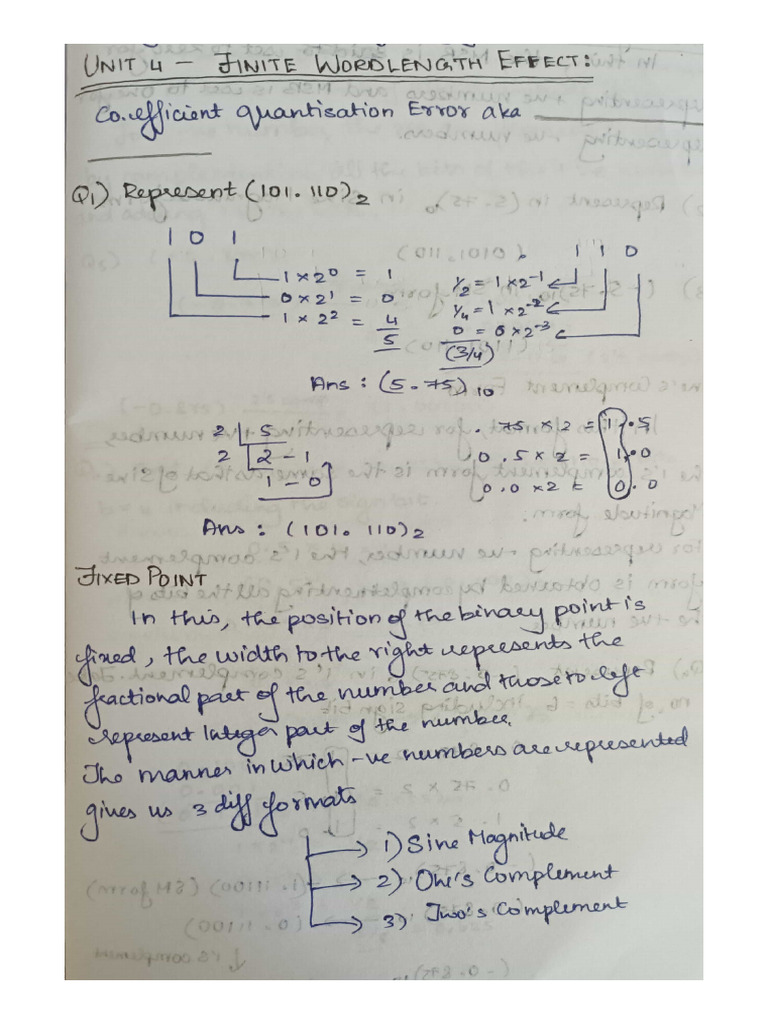 UNIT 4 - FINITE WORDLENGTH EFFECT:
Co.efficient quantisation Error aka ____________
____________
Q1) Represent (101.110)₂
1 0 1
1 × 2⁰ = 1
0 × 2¹ = 0
1 × 2² = 4
5
1 1 0
1/2 = 1 × 2⁻¹
1/4 = 1 × 2⁻²
0 = 0 × 2⁻³
(3/4)
Ans : (5.75)₁₀
2 | 5
2 | 2 - 1
1 - 0
.75 × 2 = 1.5
0.5 × 2 = 1.0
0.0 × 2 = 0.0
Ans : (101.110)₂
FIXED POINT
In this, the position of the binary point is
fixed, the width to the right represents the
fractional part of the number and those to left
represent Integer part of the number.
The manner in which -ve numbers are represented
gives us 3 diff formats
1) Sine Magnitude
2) One's Complement
3) Two's Complement